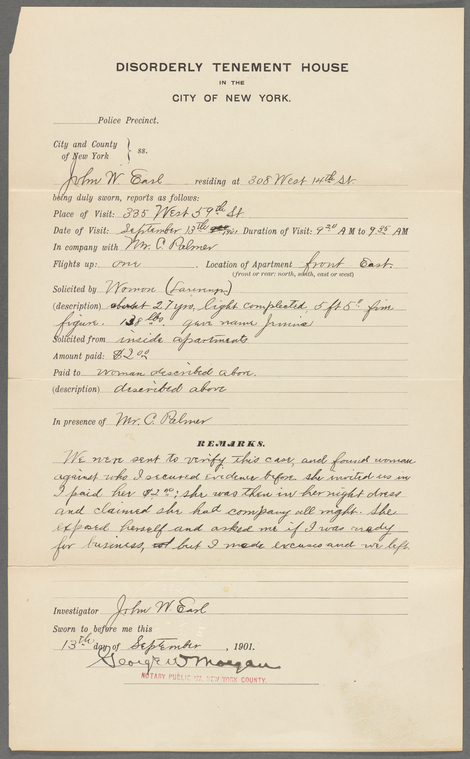 DISORDERLY TENEMENT HOUSE
IN THE
CITY OF NEW YORK.
Police Precinct.
City and County
of New York } ss.
John W. Earl residing at 308 West 14th St.
being duly sworn, reports as follows:
Place of Visit: 335 West 59th St
Date of Visit: September 13th Duration of Visit: 9 30 A M to 9 35 AM
In company with Mr. C. Relmer
Flights up: one . Location of Apartment front East.
(front or rear: north, south, east or west)
Solicited by Woman
(description) about 27 yrs, light complected, 5 ft 5", fine
figure. 138 lbs. gave name
Solicited from inside apartments
Amount paid: $2.00
Paid to woman described above.
(description) described above
In presence of Mr. C. Relmer
REMARKS.
We were sent to verify this case, and found woman
against who I secured evidence before she invited us in
I paid her $2.00; she was then in her night dress
and claimed she had company all night. She
exposed herself and asked me if I was ready
for business, but I made excuses and we left.
Investigator John W. Earl
Sworn to before me this
13th day of September , 1901.
George W Morgan
NOTARY PUBLIC NEW YORK COUNTY.